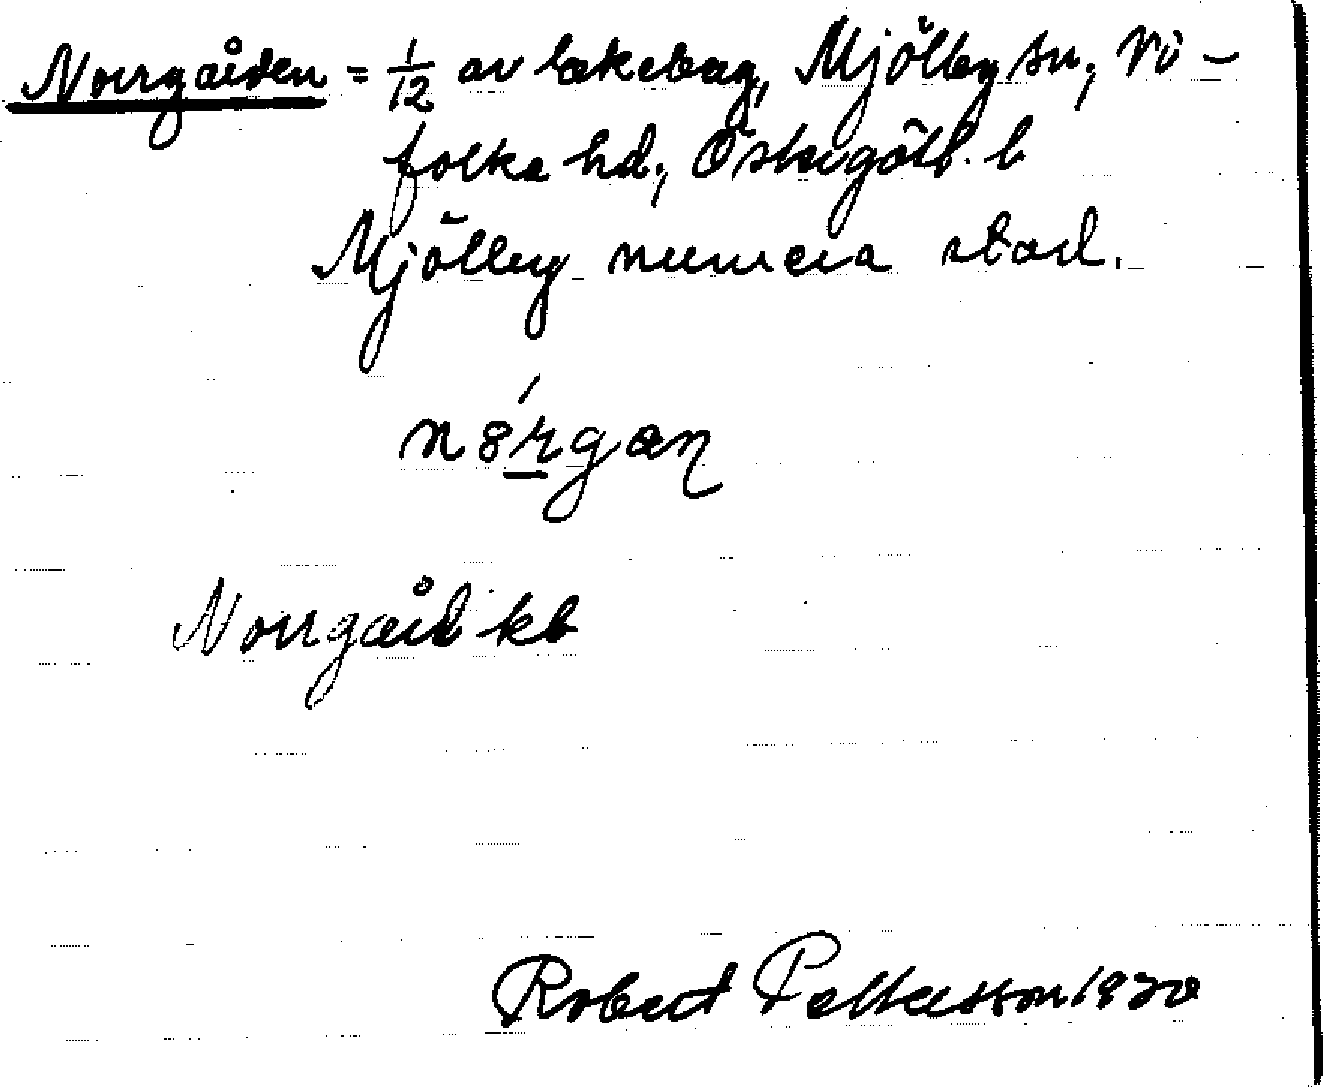 Norrgården = 1/12 av Lakeberg, Mjölby sn; Vi-
folka hd; Östergötl. l
Mjölby numera stad.
Norrgård kb
Robert Pettersson 1930